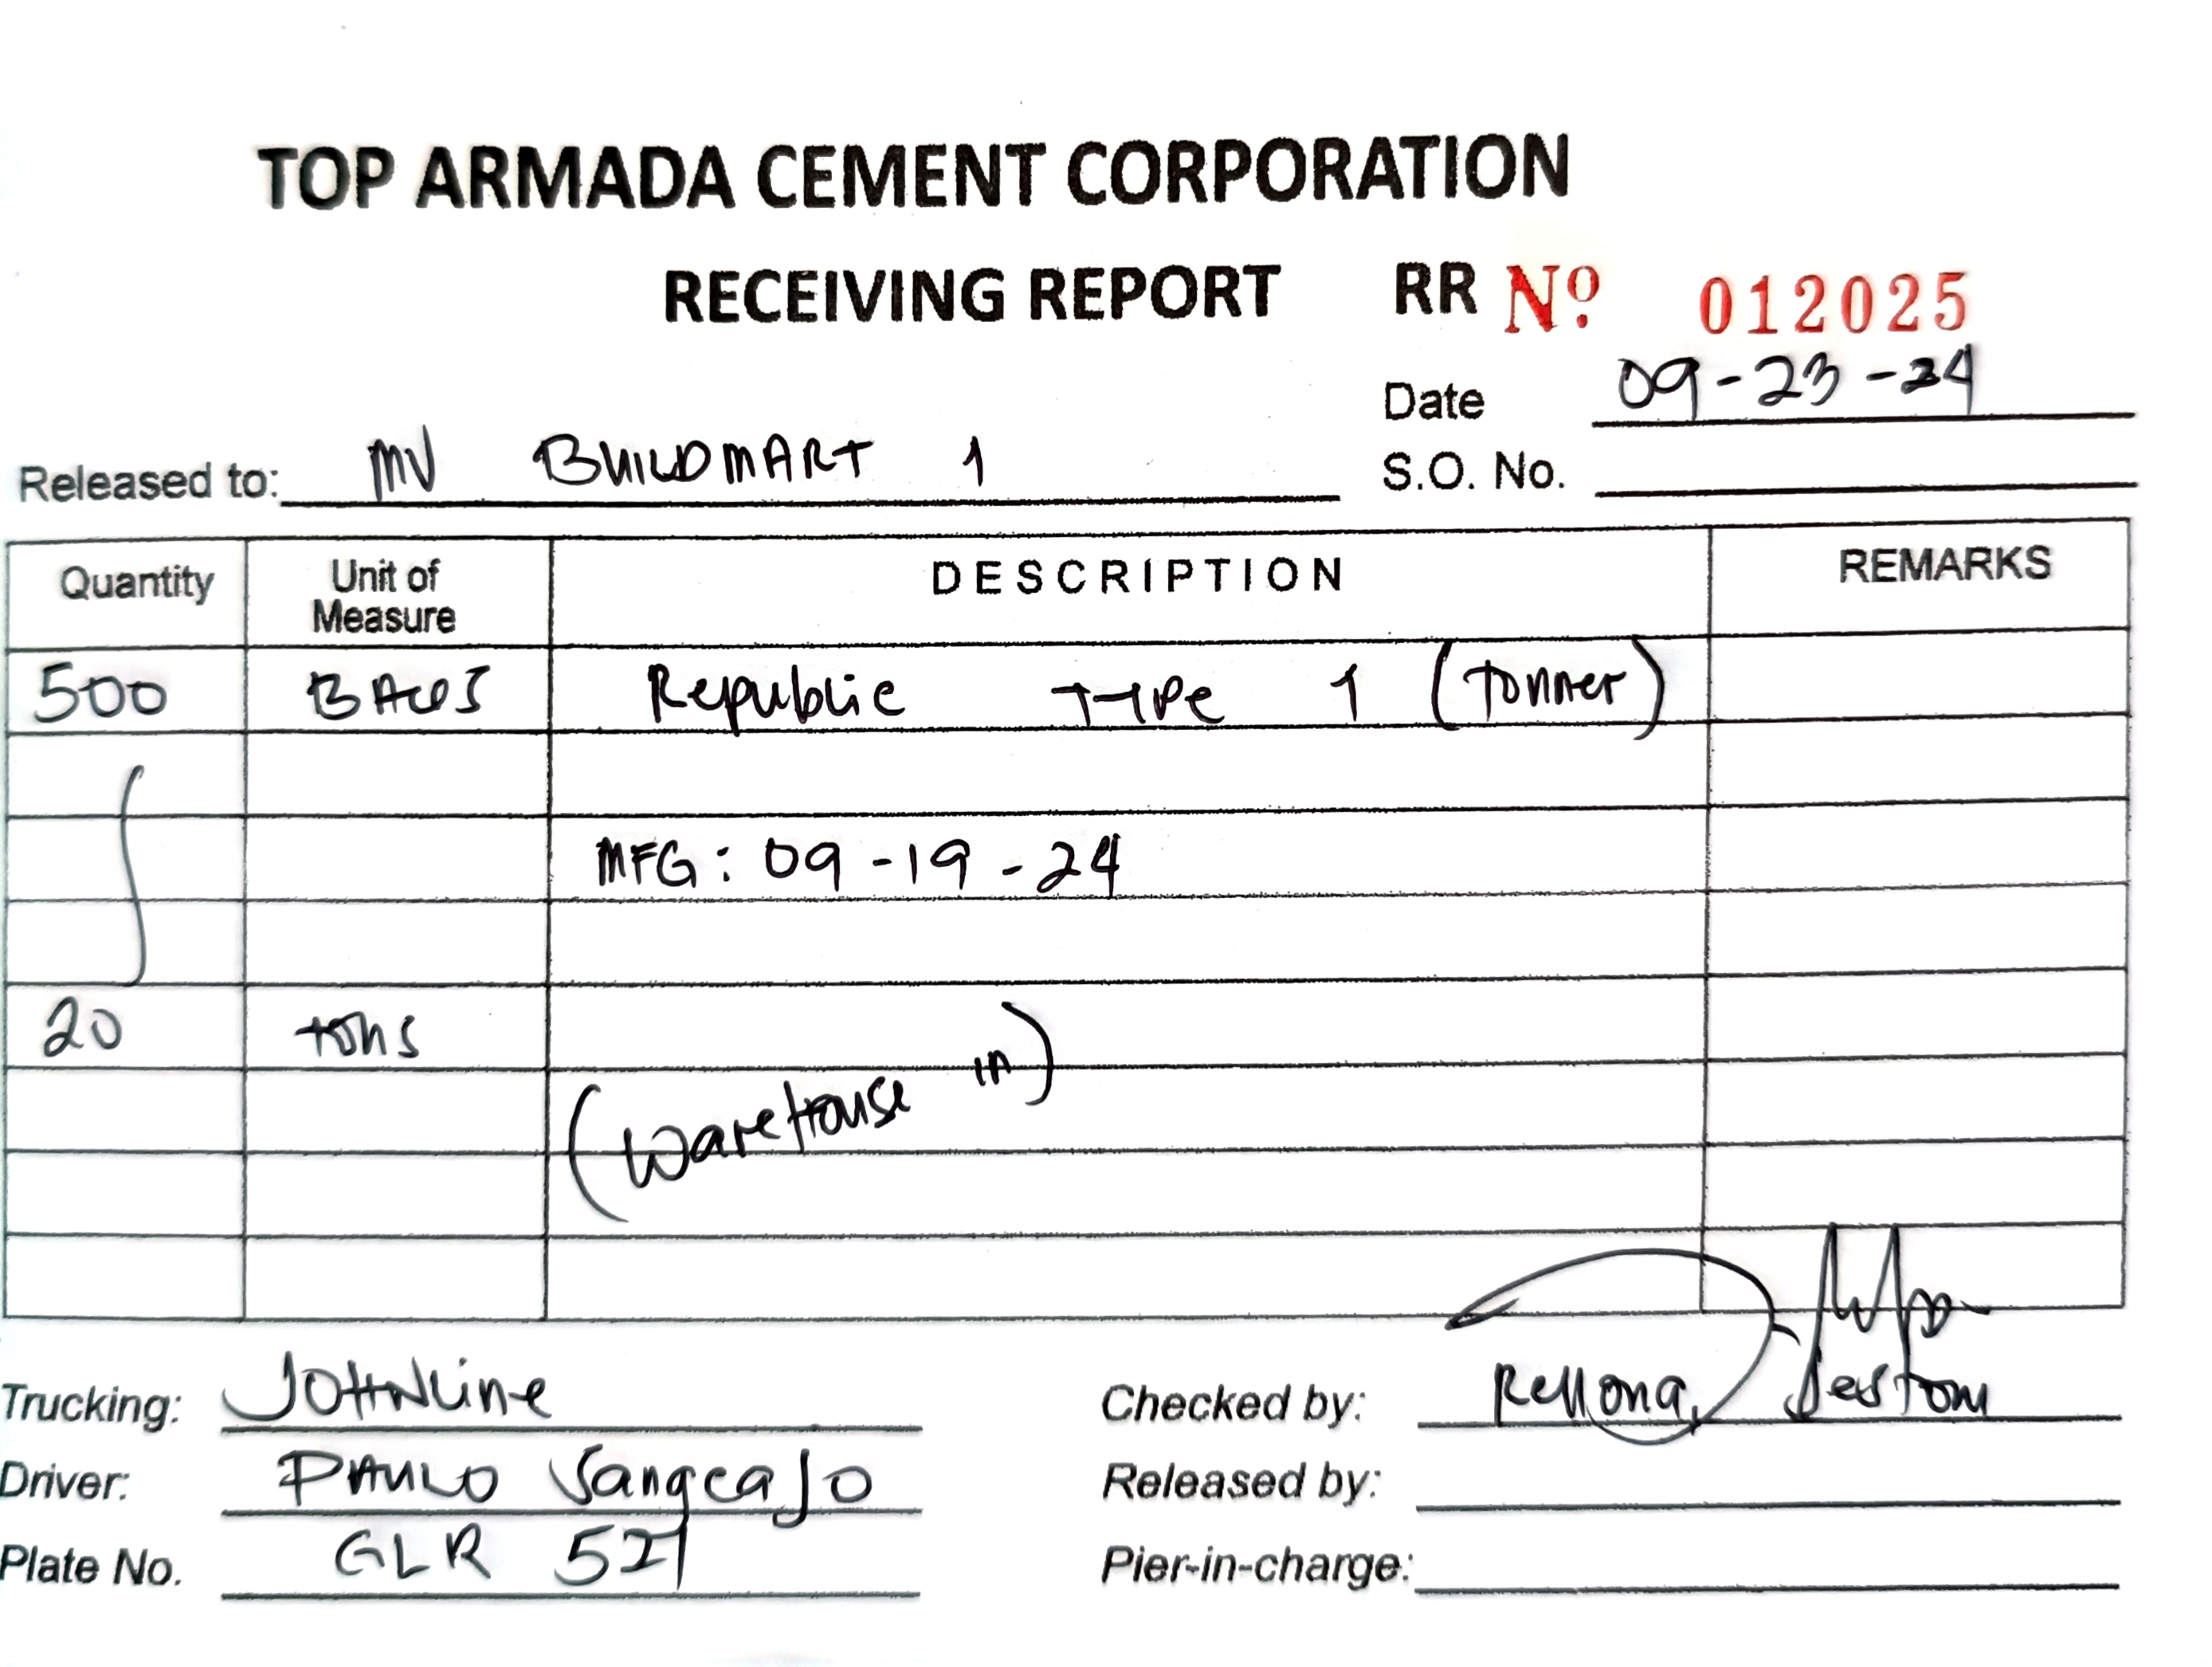 TOP ARMADA CEMENT CORPORATION
RECEIVING REPORT RR Nº. 012025
Date 09-23-24
Released to: MV BUILDMART 1
S.O. No.
Quantity Unit of Measure DESCRIPTION REMARKS
500 BAGS Republic TYPE 1 (Tonner)
MFG: 09-19-24
20 tons
(WareHouse in)
Trucking: JOHNLine
Checked by: Rellona,
Driver: PAULO
Released by:
Plate No. GLR 521
Pier-in-charge: